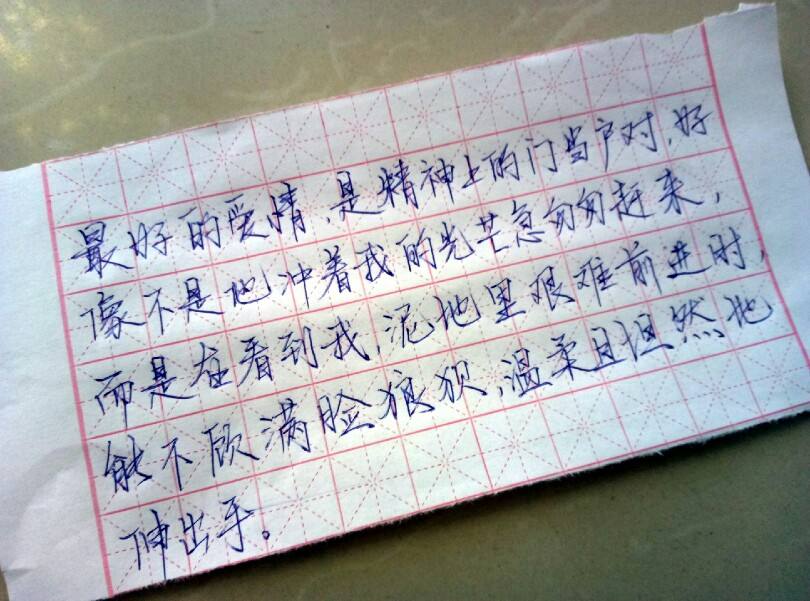 最好的爱情,是精神上的门当户对,好
像不是他冲着我的光芒急匆匆赶来,
而是在看到我,泥地里艰难前进时,
能不顾满脸狼狈,温柔且坦然地
伸出手。